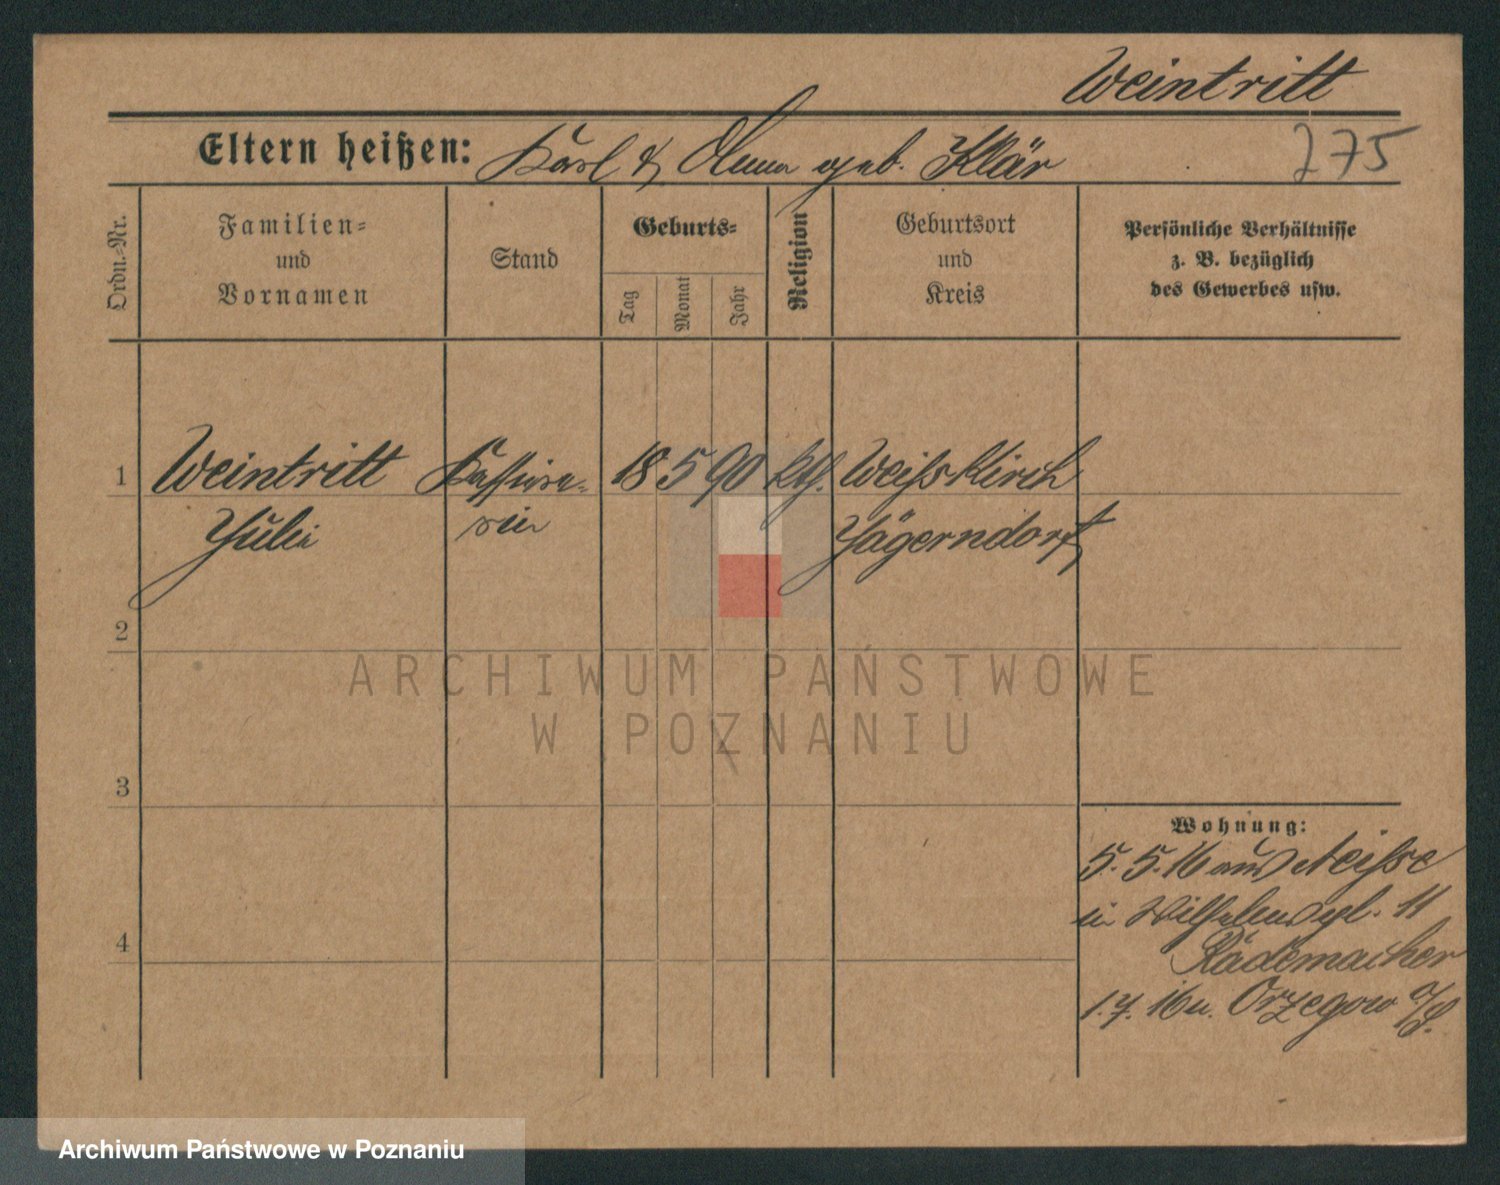 Weintritt
Eltern heißen: Karl & Anna geb. Klär
275
Ordn.-Nr.
Familien=
und
Vornamen
Stand
Geburts=
Tag
Monat
Jahr
Religion
Geburtsort
und
Kreis
Persönliche Verhältnisse
z. B. bezüglich
des Gewerbes usw.
1 Weintritt Kassire- 18 5 90 kth. Weisskirch
Julie rin Jägerndorf
2
ARCHIWUM PAŃSTWOWE
W POZNANIU
3
Wohnung:
5. 5. 16 aus Neisse
in Wilhelmspl. 11
4
Rademacher
1. 7. 16 n. Orzegow O/S.
Archiwum Państwowe w Poznaniu